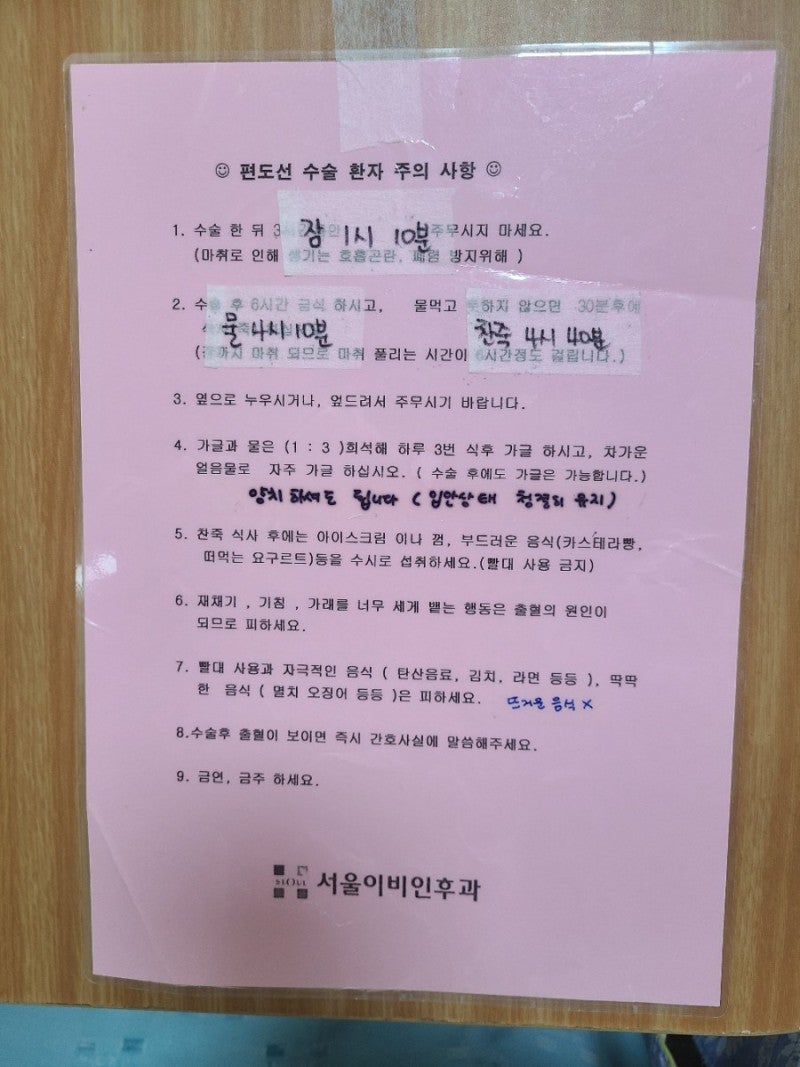 ☺ 편도선 수술 환자 주의 사항 ☺
1. 수술 한 뒤 주무시지 마세요.
잠 1시 10분
(마취로 인해 생기는 호흡곤란, 폐렴 방지위해 )
2. 수술 후 6시간 금식 하시고, 물먹고 토하지 않으면 30분후에
물 4시 10분 찬죽 4시 40분
마취 되므로 마취 풀리는 시간이 6시간정도 걸립니다.)
3. 옆으로 누우시거나, 엎드려서 주무시기 바랍니다.
4. 가글과 물은 (1 : 3 )희석해 하루 3번 식후 가글 하시고, 차가운
얼음물로 자주 가글 하십시오. ( 수술 후에도 가글은 가능합니다.)
양치하셔도 됩니다 ( 입안상태 청결히 유지)
5. 찬죽 식사 후에는 아이스크림 이나 껌, 부드러운 음식(카스테라빵,
떠먹는 요구르트)등을 수시로 섭취하세요.(빨대 사용 금지)
6. 재채기 , 기침 , 가래를 너무 세게 뱉는 행동은 출혈의 원인이
되므로 피하세요.
7. 빨대 사용과 자극적인 음식 ( 탄산음료, 김치, 라면 등등 ), 딱딱
한 음식 ( 멸치 오징어 등등 )은 피하세요. 뜨거운 음식 X
8.수술후 출혈이 보이면 즉시 간호사실에 말씀해주세요.
9. 금연, 금주 하세요.
서울이비인후과